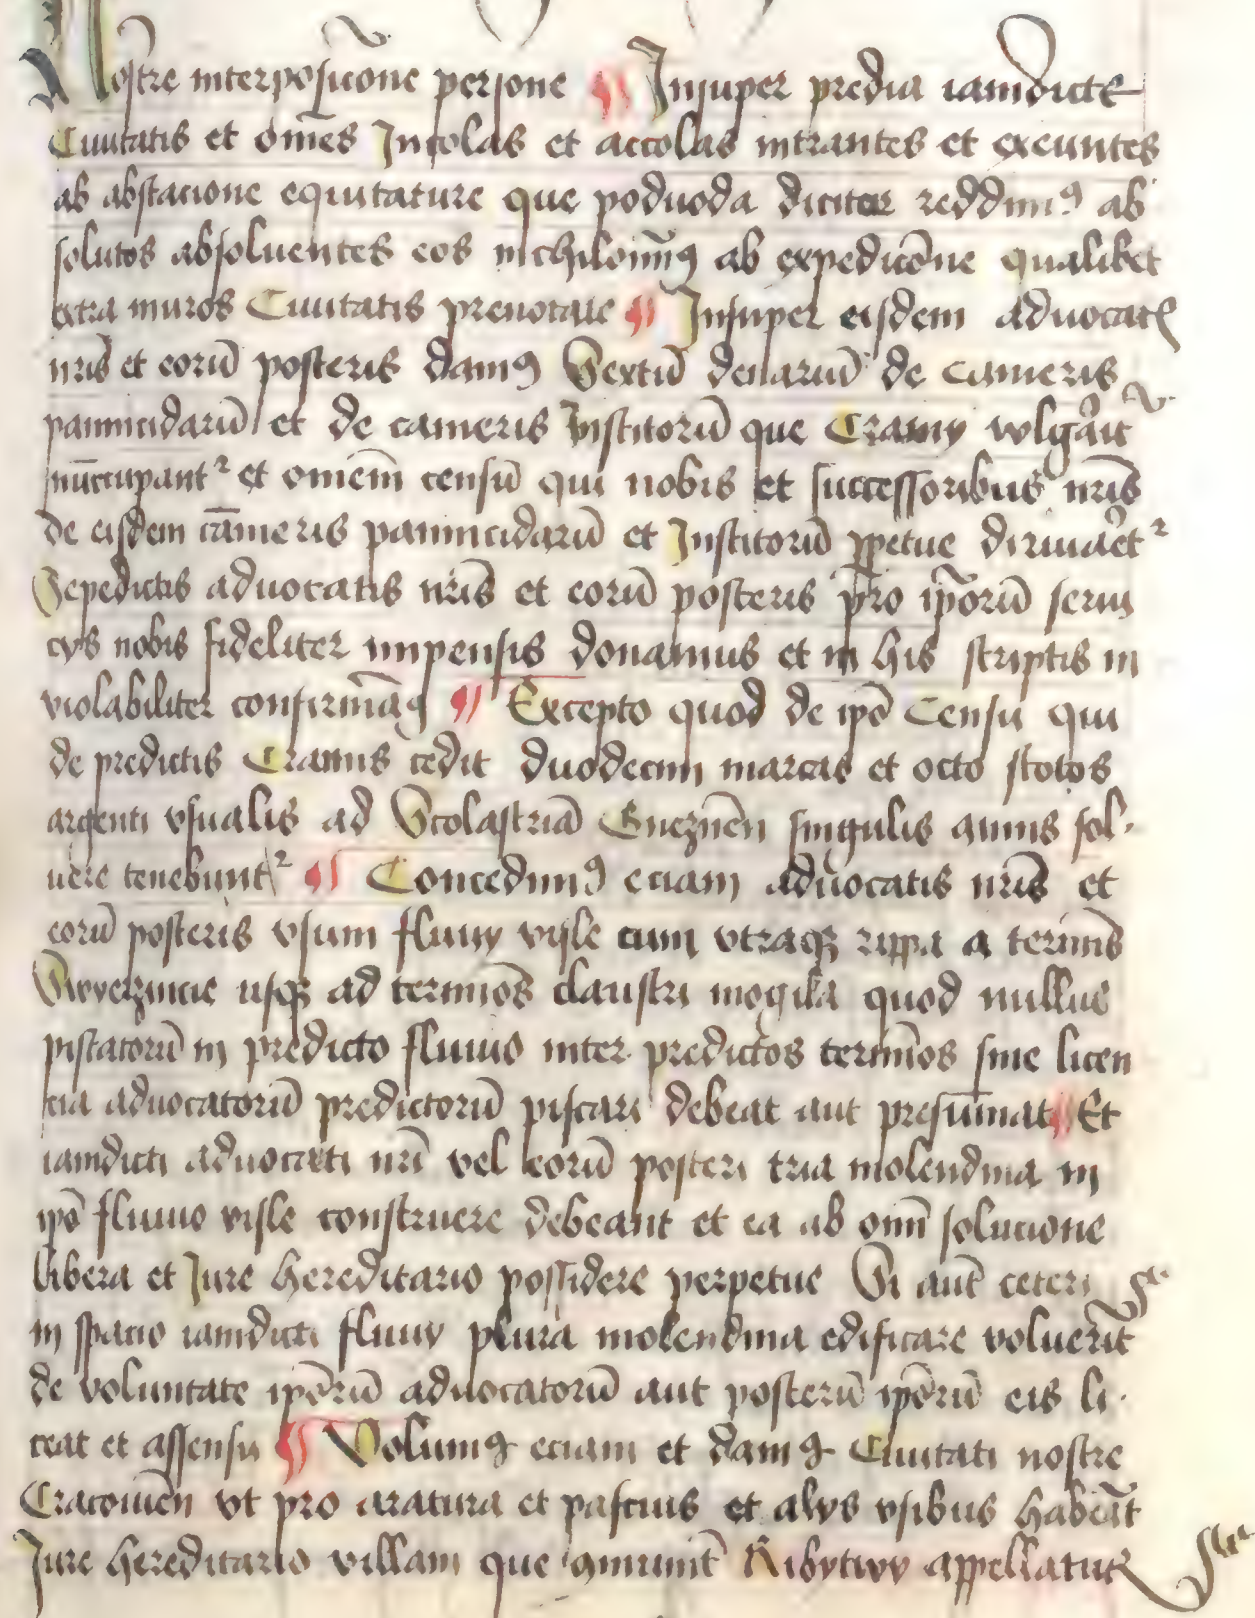 Nostre interposicõne persone ¶ Insuper predia iamdicte
Ciuitatis et om̃es Incolas et accolas intrantes et exeuntes
ab abstacione equitature que poduoda dicitur reddimꝰ ab
solutos absoluentes eos nichilomĩꝰ ab expedicõne qualibet
extra muros Ciuitatis prenotate ¶ Insuper eisdem aduocatꝭ
nrĩs et eorũ posteris damꝰ Sextũ denariũ de cameris
pannicidarũ et de cameris Institorũ que Cramy wlgarit̃
nũccupantᷣ et omnem̃ censũ qui nobis et successoribus nrĩs
de eisdem cãmeris pannicidarũ et Institorũ ꝑpetue diriuaretᷣ
Sepedictis aduocatis nrĩs et eorũ posteris pro ip̃orũ serui
cys nobis fideliter impensis donamus et in his scriptis in
violabiliter confirmãꝰ ¶ Excepto quod de ip̃o Censu qui
de predictis Cramis cedit duodecim marcas et octo scotos
argenti vsualis ad Scolastriã Gneznen̄ singulis annis sol-
uere tenebuntᷣ ¶ Concedimꝰ eciam aduocatis nrĩs et
eorũ posteris vsum fluuy visle cum vtraqꝫ rippa a termĩs
Swerzincie usqꝫ ad termĩos claustri mogila quod nullus
piscatorũ in predicto fluuio inter predictos termĩos sine licen
cia aduocatorũ predictorũ piscari debeat aut presũmat ¶ Et
iamdicti aduocati nrĩ vel eorũ posteri tria molendina in
ip̃o fluuio visle construere debeant et ea ab omĩ solucione
libera et Jure hereditario possidere perpetue Si aut̃ ceteri
in spacio iamdicti fluuy plura molendina edificare voluerĩt
de voluntate ip̃orũ aduocatorũ aut posterũ ip̃orũ eis li-
ceat et assensu ¶ Volumꝰ eciam et damꝰ Ciuitati nostre
Cracouien̄ vt pro aratura et pascuis et alys vsibus habeãt
Jure hereditario villam que ꝯmunit̃ Ribytwy appellatur